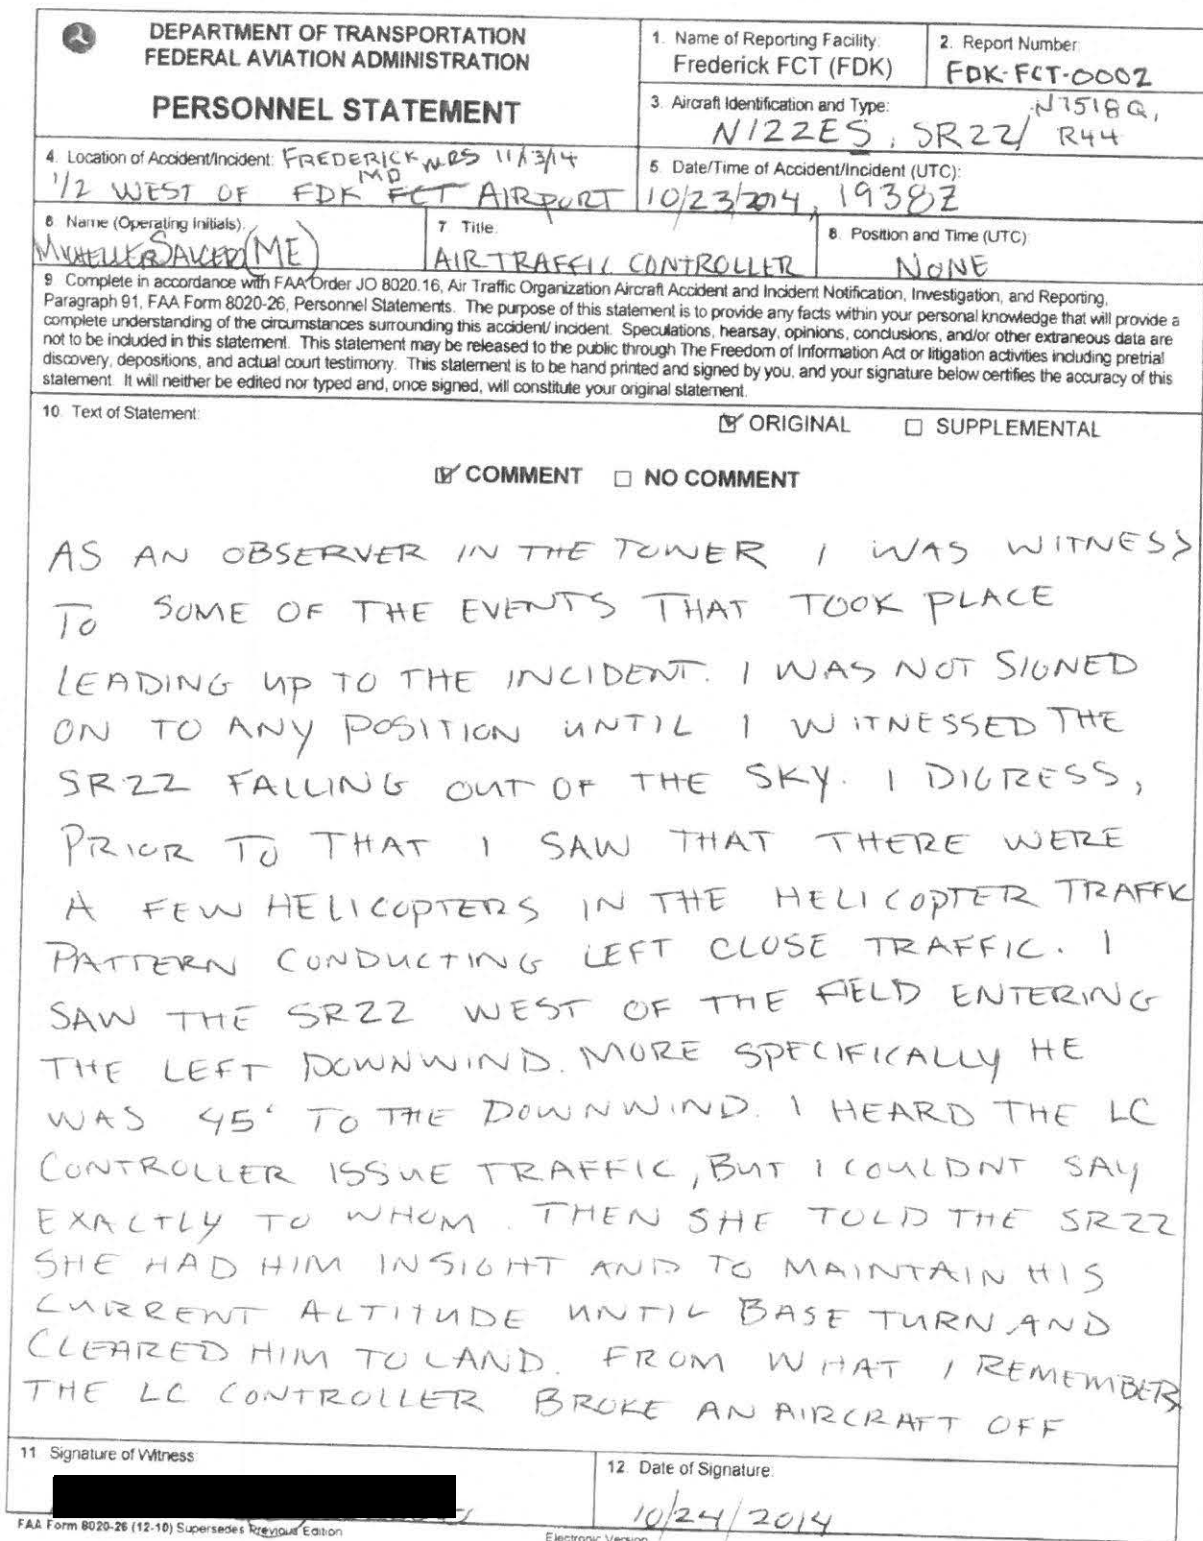 DEPARTMENT OF TRANSPORTATION
FEDERAL AVIATION ADMINISTRATION
PERSONNEL STATEMENT
1. Name of Reporting Facility:
Frederick FCT (FDK)
2. Report Number:
FDK-FCT-0002
3. Aircraft Identification and Type:
N7518Q,
N122ES, SR22/ R44
4. Location of Accident/Incident: FREDERICK 11/13/14
MD
1/2 WEST OF FDK FCT AIRPORT
5. Date/Time of Accident/Incident (UTC):
10/23/2014, 1938Z
6 Name (Operating Initials):
(ME)
7 Title:
AIR TRAFFIC CONTROLLER
8. Position and Time (UTC)
NONE
9 Complete in accordance with FAA Order JO 8020.16, Air Traffic Organization Aircraft Accident and Incident Notification, Investigation, and Reporting,
Paragraph 91, FAA Form 8020-26, Personnel Statements. The purpose of this statement is to provide any facts within your personal knowledge that will provide a
complete understanding of the circumstances surrounding this accident/ incident. Speculations, hearsay, opinions, conclusions, and/or other extraneous data are
not to be included in this statement. This statement may be released to the public through The Freedom of Information Act or litigation activities including pretrial
discovery, depositions, and actual court testimony. This statement is to be hand printed and signed by you, and your signature below certifies the accuracy of this
statement. It will neither be edited nor typed and, once signed, will constitute your original statement.
10. Text of Statement:
☑ ORIGINAL ☐ SUPPLEMENTAL
☑ COMMENT ☐ NO COMMENT
AS AN OBSERVER IN THE TOWER I WAS WITNESS
TO SOME OF THE EVENTS THAT TOOK PLACE
LEADING UP TO THE INCIDENT. I WAS NOT SIGNED
ON TO ANY POSITION UNTIL I WITNESSED THE
SR22 FALLING OUT OF THE SKY. I DIGRESS,
PRIOR TO THAT I SAW THAT THERE WERE
A FEW HELICOPTERS IN THE HELICOPTER TRAFFIC
PATTERN CONDUCTING LEFT CLOSE TRAFFIC. I
SAW THE SR22 WEST OF THE FIELD ENTERING
THE LEFT DOWNWIND. MORE SPECIFICALLY HE
WAS 45° TO THE DOWNWIND. I HEARD THE LC
CONTROLLER ISSUE TRAFFIC, BUT I COULDNT SAY
EXACTLY TO WHOM. THEN SHE TOLD THE SR22
SHE HAD HIM INSIGHT AND TO MAINTAIN HIS
CURRENT ALTITUDE UNTIL BASE TURN AND
CLEARED HIM TO LAND. FROM WHAT I REMEMBER,
THE LC CONTROLLER BROKE AN AIRCRAFT OFF
11 Signature of Witness:
12. Date of Signature:
10/24/2014
FAA Form 8020-26 (12-10) Supersedes Previous Edition
Electronic Version